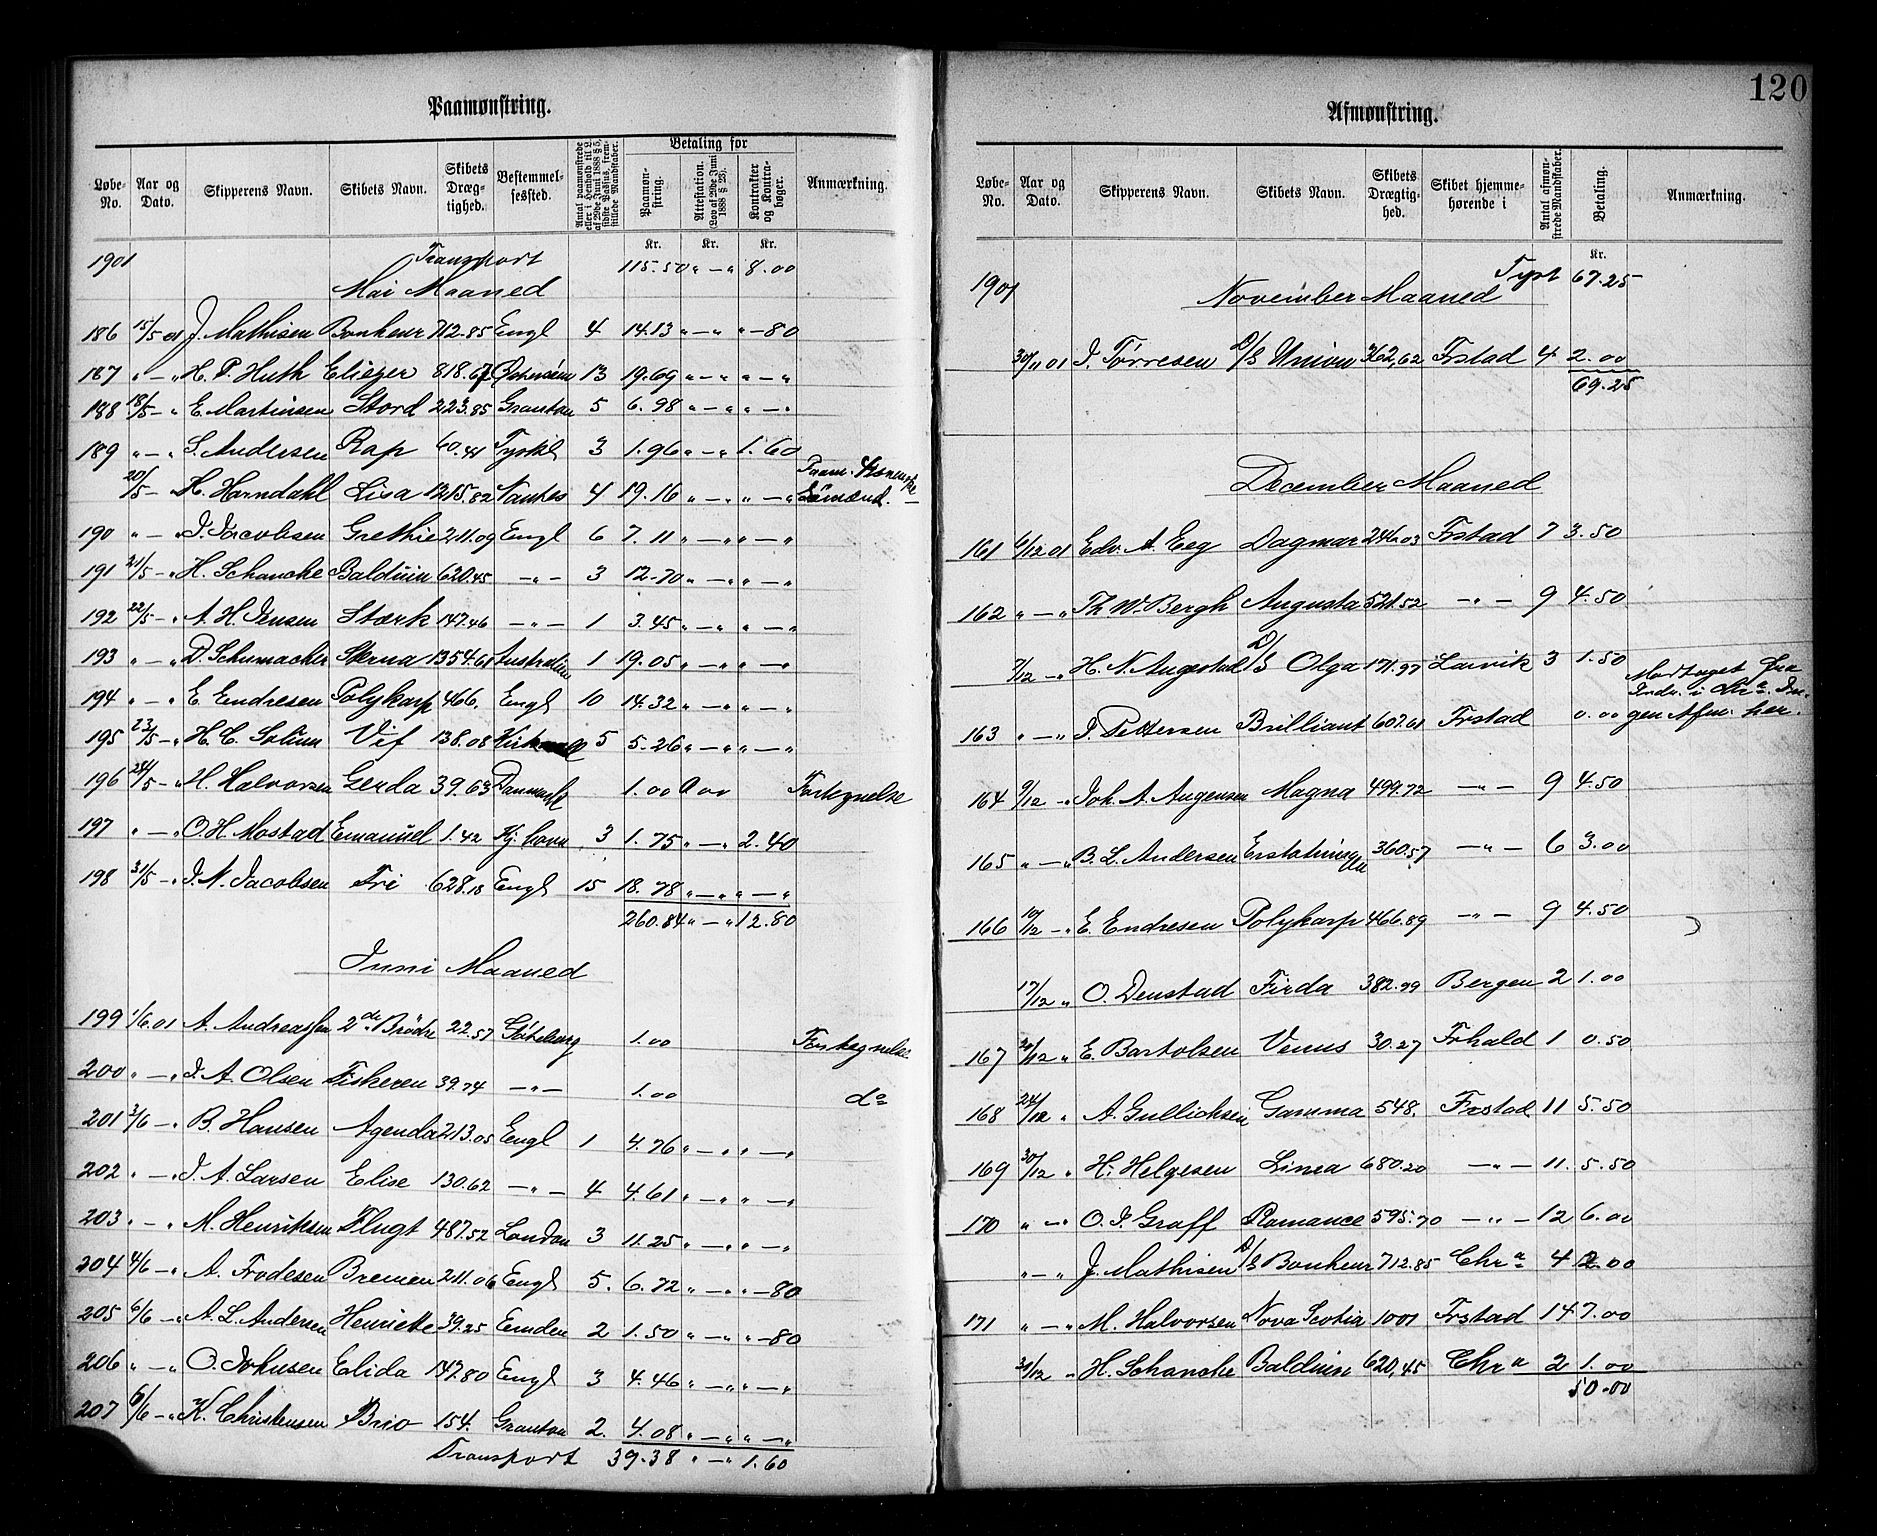 Paamønstring.
Løbe-No. Aar og Dato. Skipperens Navn. Skibets Navn. Skibets Dræg-tighed. Bestemmel-sessted. Betaling for Paamøn-string. Attestation. (Lov af 29de Juni 1888 § 23). Kontrakter og Kontra-bøger. Anmærkning.
Kr. Kr. Kr.
1901 Transport 115.50 " — " 8.00
Mai Maaned
186 15/5 01 J. Mathisen Bonheur 712.85 Engl 4 14.13 " — " " —80
187 " — " H. P. Huth Eliezer 818.67 13 19.69 " — " " — "
188 18/5 — " E. Martinsen Stord 223.85 Granton 5 6.98 " — " " — "
189 " — " S. Andersen Rap 60.41 Tyskl 3 1.96 " — " 1.60
20/5 — " H. Horndahl Lisa 1215.82 Nantes 4 19.16 " — " " — " Paam.
190 " — " J. Jacobsen Grethie 211.09 Engl 6 7.11 " — " " — "
191 21/5 — " H. Schancke Balduin 620.45 — " — 3 12.70 " — " " — "
192 22/5 — " A. H. Jensen Stærk 147.46 — " — 1 3.45 " — " " — "
193 " — " D. Schumacher Sterna 1354.61 Australien 1 19.05 " — " " — "
194 " — " E. Endresen Polykarp 466. Engl 10 14.32 " — " " — "
195 23/5 — " H. C. Solum Vif 138.08 5 5.26 " — " " — "
196 24/5 — " H. Halvorsen Gerda 39.63 Danmark 1.00 0 00 Fortegnelse
197 " — " O. H. Mostad Emanuel 1.42 Kj. havn 3 1.75 " — " 2.40
198 31/5 — " J. N. Jacobsen Fri 628.18 Engl 15 18.78 " — " " — "
260.84 " — " 12.80
Juni Maaned
199 1/6.01 A. Andreassen 2de Brödre 22.57 Göteborg 1.00 Fortegnelse
200 " — " J. A. Olsen Fiskeren 39.74 — " — 1.00 do
201 3/6 — " B. Hansen Agenda 213.05 Engl 1 4.76 " — " " — "
202 " — " J. A. Larsen Elise 130.62 — " — 4 4.61 " — " " — "
203 " — " M. Henriksen Flugt 487.52 London 3 11.25 " — " " — "
204 4/6 — " A. Frodesen Bremen 211.06 Engl 5. 6.72 " — " " —80
205 6/6 — " A. L. Andersen Henriette 39.25 Emden 2 1.50 " — " " —80
206 " — " O. Johnsen Elida 147.80 Engl 3 4.46 " — " " — "
207 6/6 — " K. Christensen Brio 154. Granton 2. 4.08 " — " " — "
Transport 39.38 " — " 1.60
120
Afmønstring.
Løbe-No. Aar og Dato. Skipperens Navn. Skibets Navn. Skibets Drægtig-hed. Skibet hjemme-hørende i Antal afmøn-strede Mandskaber. Betaling. Anmærkning.
Kr.
1901 67.25
November Maaned
30/11 01 J. Törresen D/S Union 362,62 Frstad 4 2.00
69.25
December Maaned
161 6/12 01 Edv. A. Eeg Dagmar 246.03 Frstad 7 3.50
162 " — " Th. W. Bergh Augusta 521.52 — " — 9 4.50
7/12 — " H. N. Augestad D/S Olga 171.97 Larvik 3 1.50
163 " — " J. Pettersen Brilliant 607.61 Frstad 0.00 gen Afm. her.
164 9/12 — " Joh. A. Augensen Magna 499.72 — " — 9 4.50
165 " — " B. L. Andersen Erstatningen 360.57 — " — 6 3.00
166 10/12 — " E. Endresen Polykarp 466.89 — " — 9 4.50
17/12 " O. Denstad Firda 382.99 Bergen 2 1.00
167 20/12 " E. Bartolsen Venus 30.27 Frhald 1 0.50
168 24/12 " A. Gullichsen Gamma 548. Frstad 11 5.50
169 30/12 " H. Helgesen Linea 680.20 — " — 11. 5.50
170 " — " O. J. Graff Romance 595.70 — " — 12 6.00
" — " J. Mathisen D/S Bonheur 712.85 Chra 4 2.00
171 " — " M. Halvorsen Nova Scotia 1001 Frstad 14 7.00
31/12 " H. Schancke Balduin 620,45 Chra 2 1.00
50.00